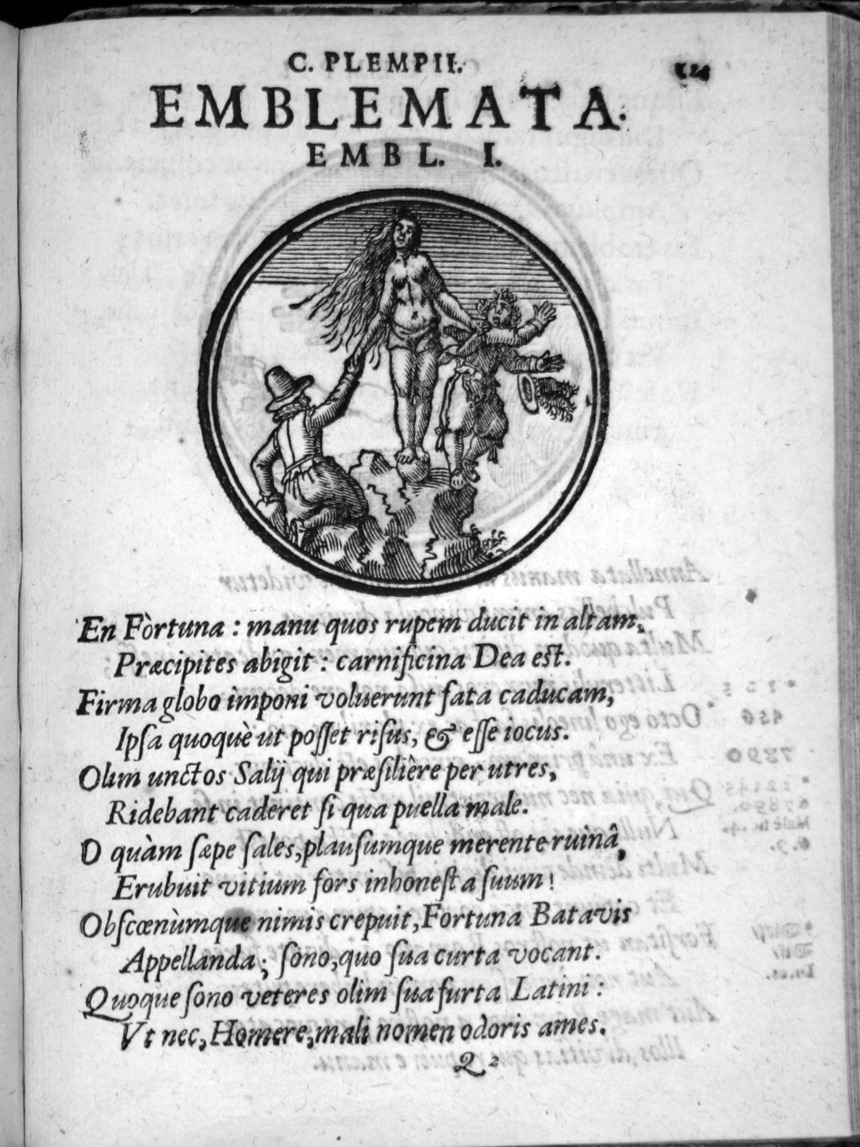 C. PLEMPII.
124
EMBLEMATA.
EMBL. I.
En Fòrtuna : manu quos rupem ducit in altam,
Præcipites abigit : carnificina Dea est.
Firma globo imponi voluerunt fata caducam,
Ipsa quoquè ut posset risus, & esse iocus.
Olim unctos Salij qui præsilière per utres,
Ridebant caderet si qua puella male.
O quàm sæpe sales, plausumque merente ruinâ,
Erubuit vitium fors inhonesta suum!
Obscœnùmque nimis crepuit, Fortuna Batavis
Appellanda; sono, quo sua curta vocant.
Quoque sono veteres olim sua furta Latini :
Vt nec, Homere, mali nomen odoris ames.
Q 2